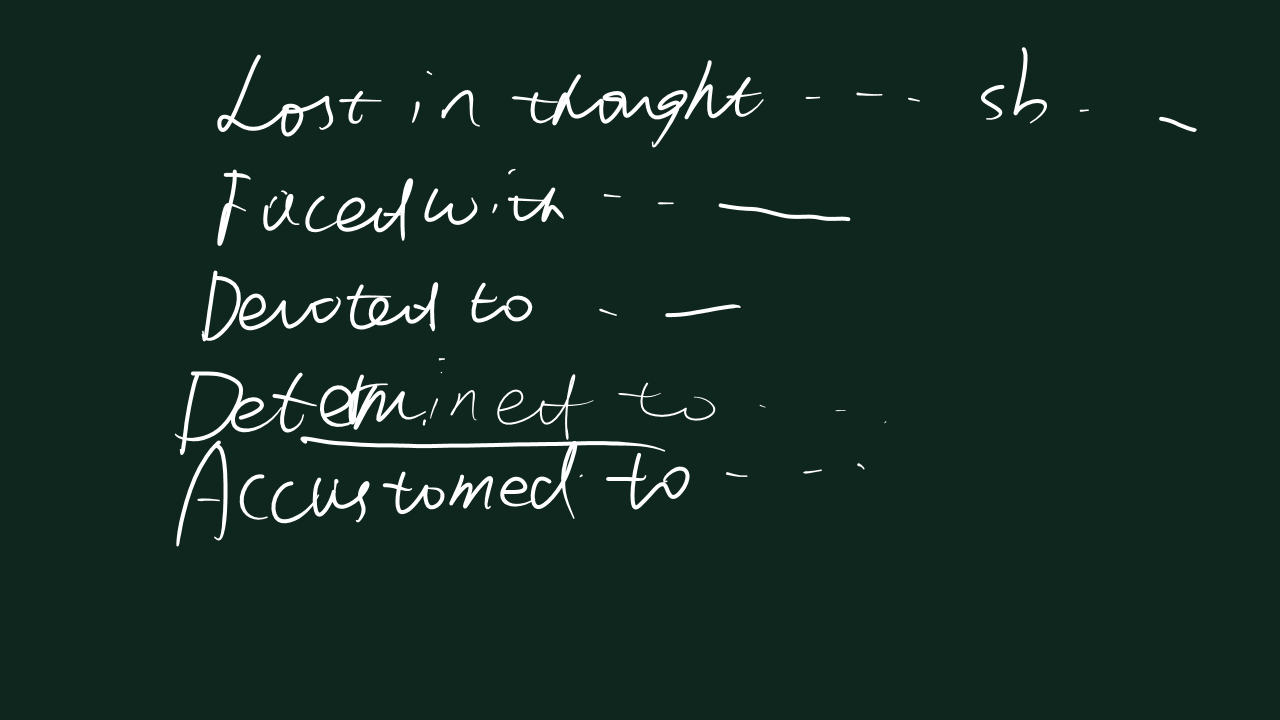 Lost in thought - - - - sb. -
Faced with - - —
Devoted to - —
Determined to - - -
Accustomed to - - -